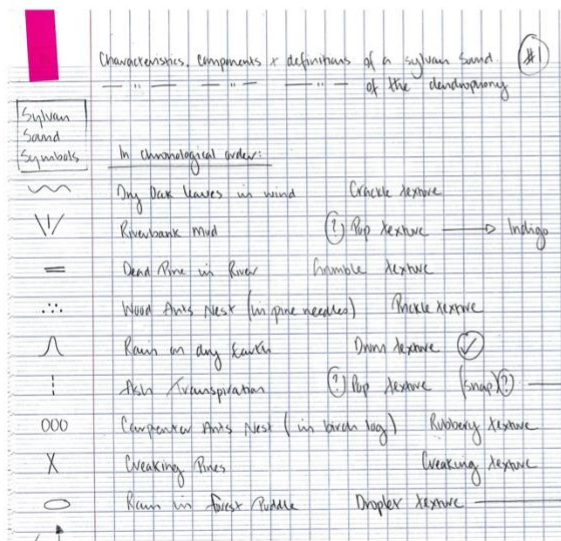 Characteristics, components & definitions of a sylvan sound #1
— " — — " — — " — of the dendrophony
Sylvan
Sound
Symbols
In chronological order:
Dry Oak leaves in wind Crackle texture
Riverbank mud (?) Pop texture → Indigo
Dead Pine in River texture
Wood Ants Nest (in pine needles) Prickle texture
Rain on dry Earth Drum texture ✓
Ash Transpiration (?) Pop texture (snap) (?)
000 Carpenter Ants Nest (in birch log) Rubbery texture
X Creaking Pines Creaking texture
Rain in forest Puddle Droplet texture